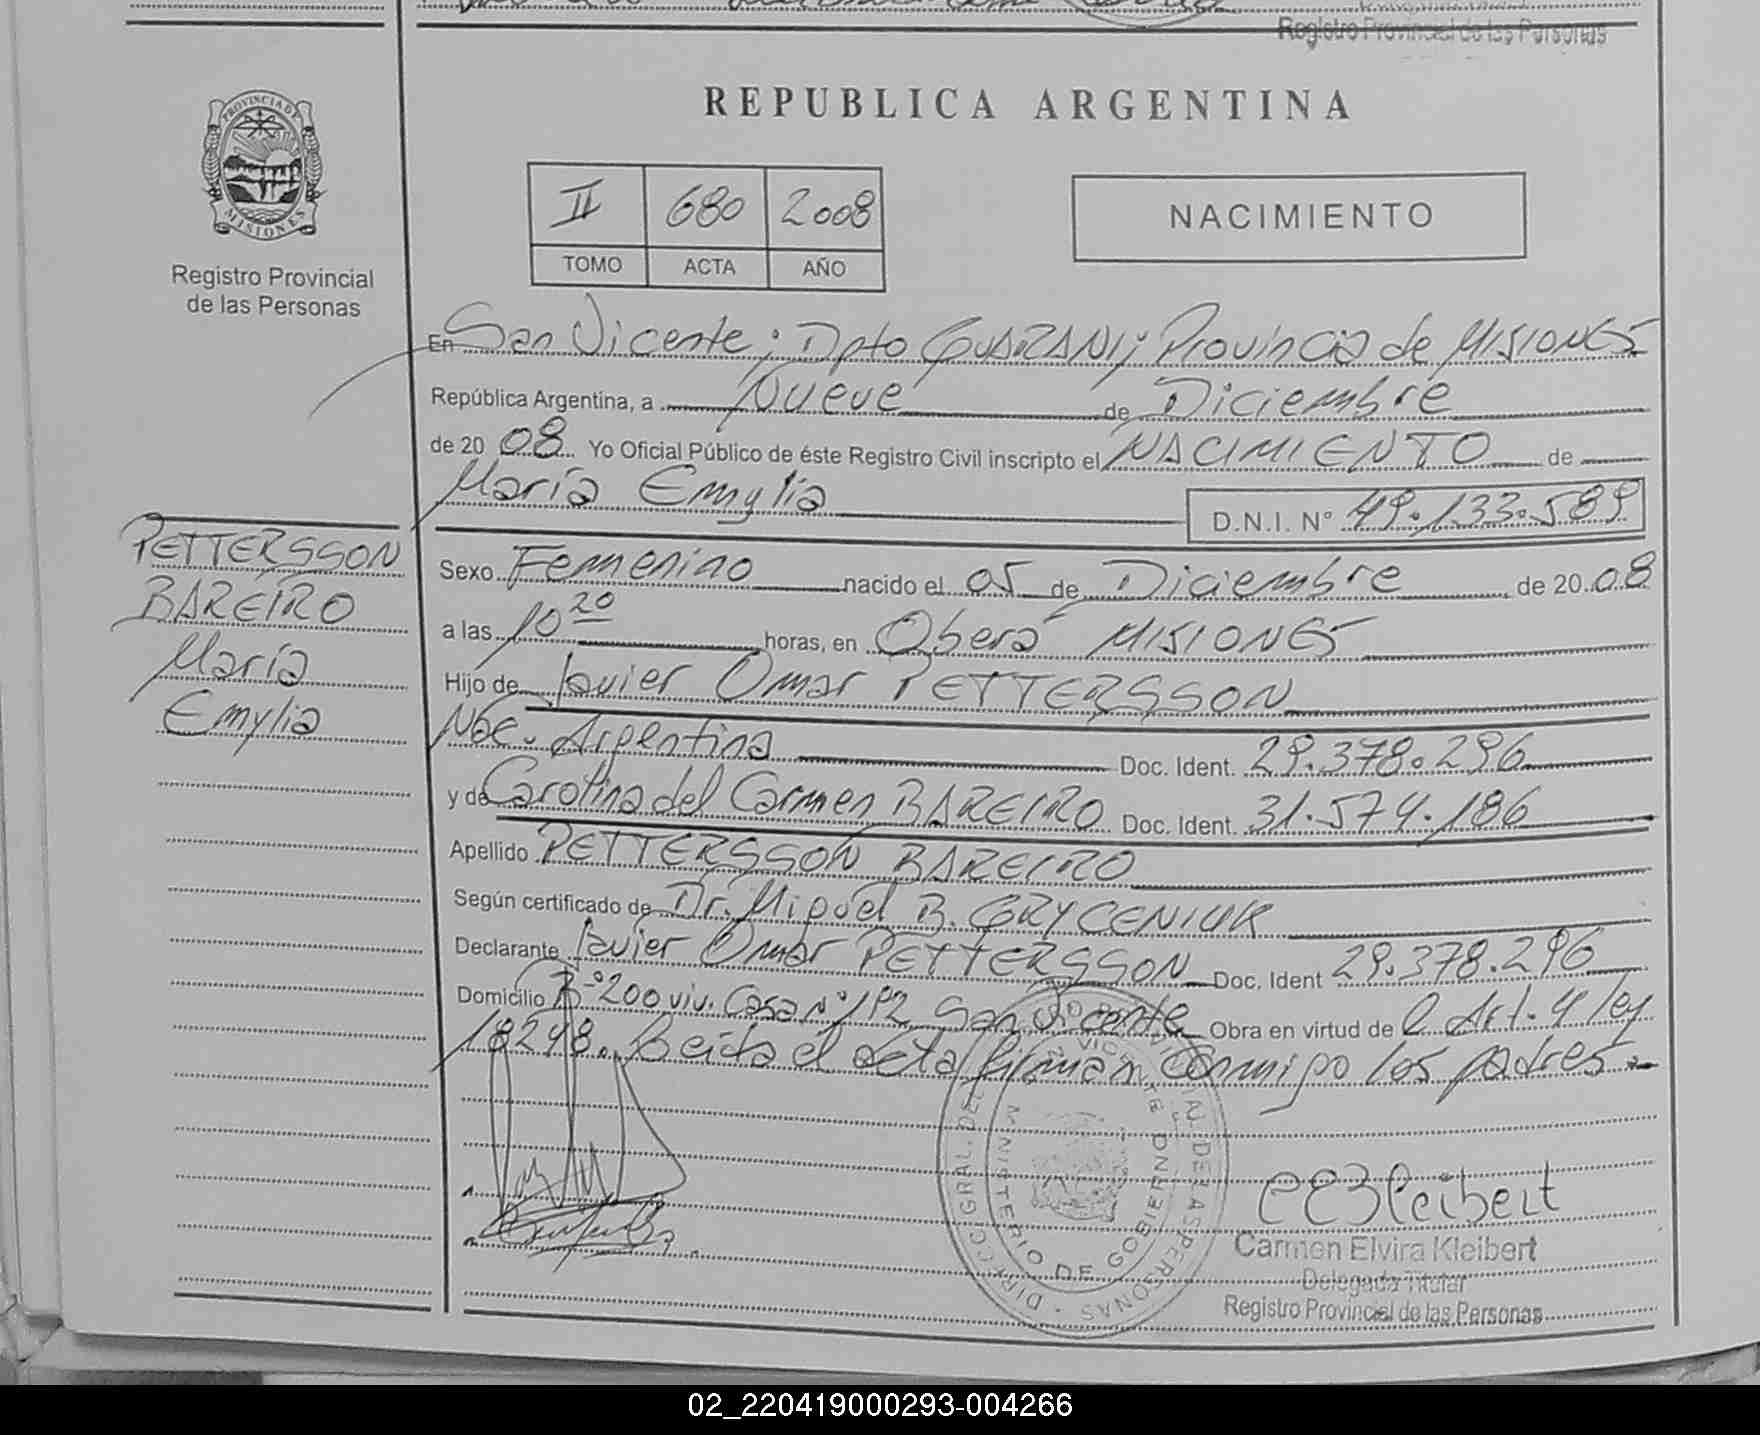 Registro Provincial de las Personas
PROVINCIA DE
MISIONES
Registro Provincial
de las Personas
REPUBLICA ARGENTINA
II 680 2008
TOMO ACTA AÑO
NACIMIENTO
En San Vicente; Dpto GUARANI; Provincia de MISIONES
República Argentina, a Nueve de Diciembre
de 2008 Yo Oficial Público de éste Registro Civil inscripto el NACIMIENTO de
María Emylia
D.N.I. N° 49.133.589
PETTERSSON
BAREIRO
María
Emylia
Sexo Femenino nacido el 05 de Diciembre, de 2008
a las 10 20 horas, en Oberá MISIONES
Hijo de Javier Omar PETTERSSON
Nac. Argentina Doc. Ident. 29.378.296
y de Carolina del Carmen BAREIRO Doc. Ident. 31.574.186
Apellido PETTERSSON BAREIRO
Según certificado de Dr. Miguel B. GRYCENIUK
Declarante Javier Omar PETTERSSON Doc. Ident 29.378.296
Domicilio B° 200 viv. Casa N° 192 San Vicente Obra en virtud de O Art. 4 ley
18248. Leída el acta firman conmigo los padres.-
DIRECC. GRAL. DEL
DE LAS PERSONAS
MINISTERIO DE GOBIERNO
CEKleibert
Carmen Elvira Kleibert
Delegada Titular
Registro Provincial de las Personas
02_220419000293-004266